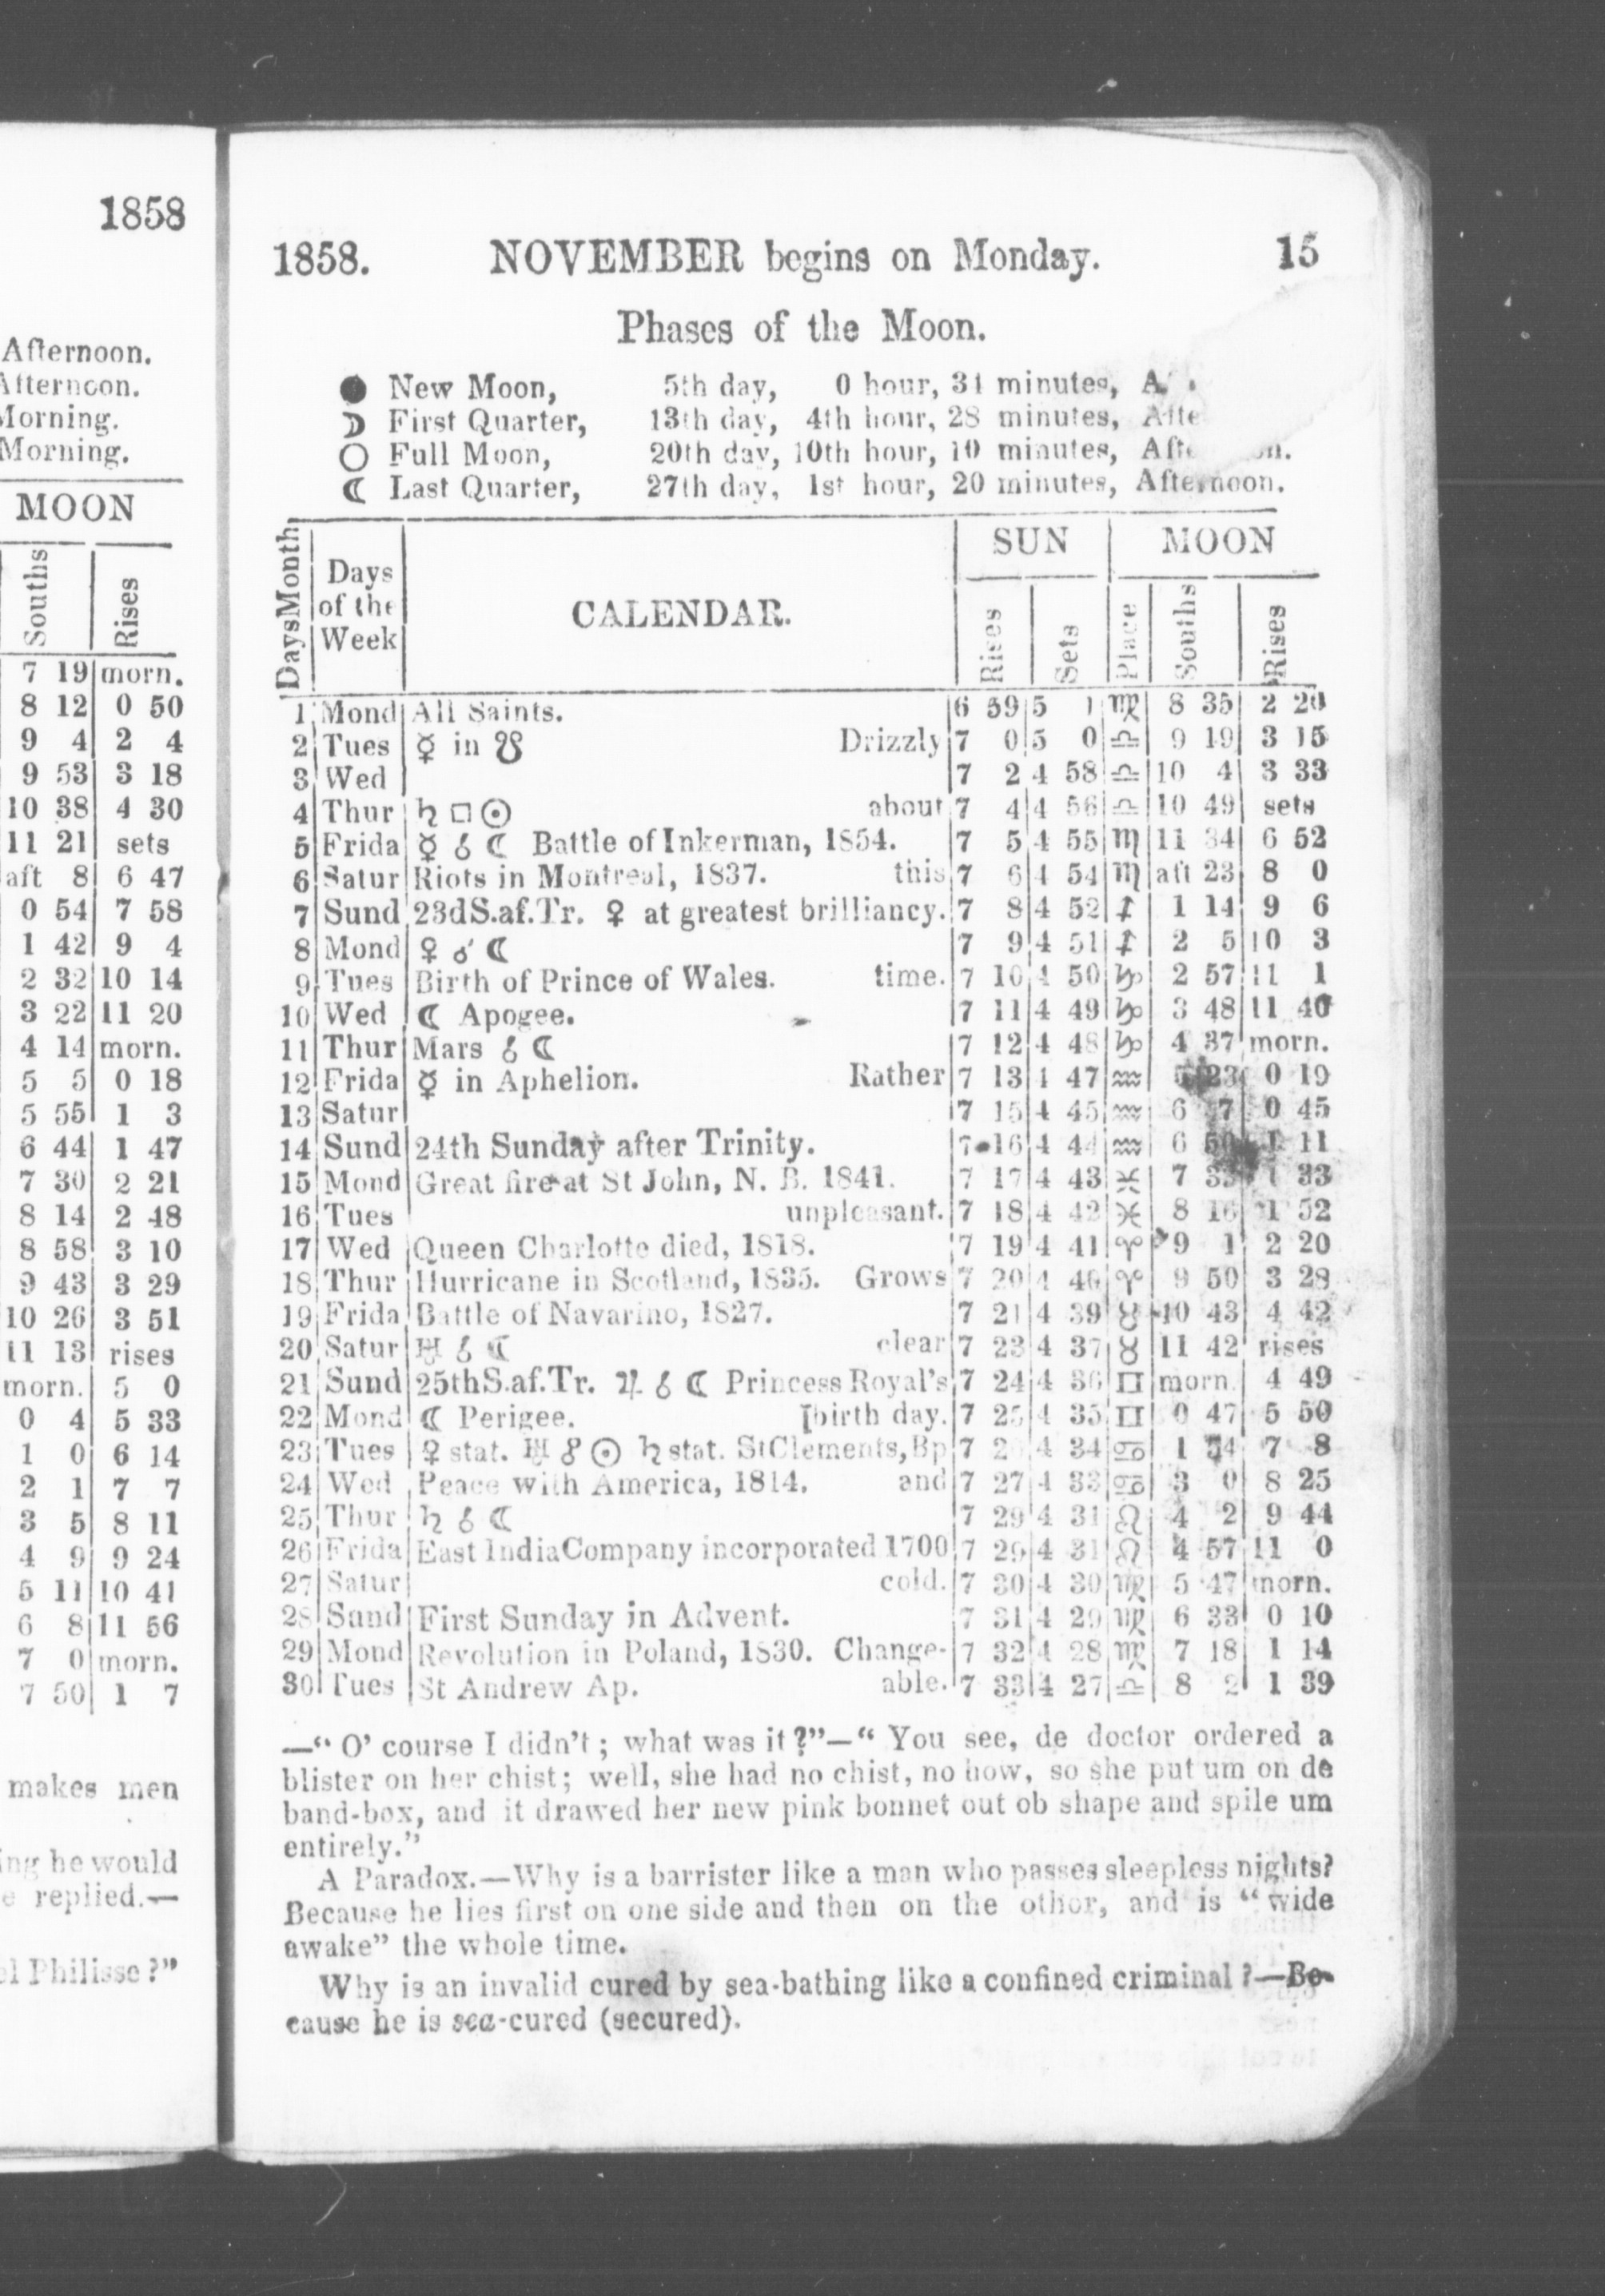 1858
Afternoon.
Afternoon.
Morning.
Morning.
MOON
Souths
Rises
7 19 morn.
8 12 0 50
9 4 2 4
9 53 3 18
10 38 4 30
11 21 sets
aft 8 6 47
0 54 7 58
1 42 9 4
2 32 10 14
3 22 11 20
4 14 morn.
5 5 0 18
5 55 1 3
6 44 1 47
7 30 2 21
8 14 2 48
8 58 3 10
9 43 3 29
10 26 3 51
11 13 rises
morn. 5 0
0 4 5 33
1 0 6 14
2 1 7 7
3 5 8 11
4 9 9 24
5 11 10 41
6 8 11 56
7 0 morn.
7 50 1 7
makes men
ing he would
e replied.—
el Philisse?"
1858. NOVEMBER begins on Monday. 15
Phases of the Moon.
● New Moon, 5th day, 0 hour, 31 minutes, A
☽ First Quarter, 13th day, 4th hour, 28 minutes, Afte
○ Full Moon, 20th day, 10th hour, 10 minutes, Afte on.
☾ Last Quarter, 27th day, 1st hour, 20 minutes, Afternoon.
DaysMonth
Days of the Week
CALENDAR.
SUN
MOON
Rises
Sets
Place
Souths
Rises
1 Mond All Saints. 6 59 5 1 ♍ 8 35 2 20
2 Tues ☿ in ☋ Drizzly 7 0 5 0 ♎ 9 19 3 15
3 Wed 7 2 4 58 ♎ 10 4 3 33
4 Thur ♄ □ ☉ about 7 4 4 56 ♎ 10 49 sets
5 Frida ☿ ☌ ☾ Battle of Inkerman, 1854. 7 5 4 55 ♏ 11 34 6 52
6 Satur Riots in Montreal, 1837. this 7 6 4 54 ♏ aft 23 8 0
7 Sund 23dS.af.Tr. ♀ at greatest brilliancy. 7 8 4 52 ♐ 1 14 9 6
8 Mond ♀ ☌ ☾ 7 9 4 51 ♐ 2 5 10 3
9 Tues Birth of Prince of Wales. time. 7 10 4 50 ♑ 2 57 11 1
10 Wed ☾ Apogee. 7 11 4 49 ♑ 3 48 11 40
11 Thur Mars ☌ ☾ 7 12 4 48 ♑ 4 37 morn.
12 Frida ☿ in Aphelion. Rather 7 13 4 47 ♒ 5 23 0 19
13 Satur 7 15 4 45 ♒ 6 7 0 45
14 Sund 24th Sunday after Trinity. 7 16 4 44 ♒ 6 50 1 11
15 Mond Great fire at St John, N. B. 1841. 7 17 4 43 ♓ 7 33 1 33
16 Tues unpleasant. 7 18 4 42 ♓ 8 16 1 52
17 Wed Queen Charlotte died, 1818. 7 19 4 41 ♈ 9 1 2 20
18 Thur Hurricane in Scotland, 1835. Grows 7 20 4 40 ♈ 9 50 3 28
19 Frida Battle of Navarino, 1827. 7 21 4 39 ♉ 10 43 4 42
20 Satur ♅ ☌ ☾ clear 7 23 4 37 ♉ 11 42 rises
21 Sund 25thS.af.Tr. ♃ ☌ ☾ Princess Royal's 7 24 4 36 ♊ morn. 4 49
22 Mond ☾ Perigee. [birth day. 7 25 4 35 ♊ 0 47 5 50
23 Tues ♀ stat. ♅ ☍ ☉ ♄ stat. St Clements, Bp 7 2 4 34 ♋ 1 54 7 8
24 Wed Peace with America, 1814. and 7 27 4 33 ♋ 3 0 8 25
25 Thur ♄ ☌ ☾ 7 29 4 31 ♌ 4 2 9 44
26 Frida East India Company incorporated 1700 7 29 4 31 ♌ 4 57 11 0
27 Satur cold. 7 30 4 30 ♍ 5 47 morn.
28 Sund First Sunday in Advent. 7 31 4 29 ♍ 6 33 0 10
29 Mond Revolution in Poland, 1830. Change- 7 32 4 28 ♍ 7 18 1 14
30 Tues St Andrew Ap. able. 7 33 4 27 ♎ 8 2 1 39
—"O' course I didn't; what was it?"—"You see, de doctor ordered a
blister on her chist; well, she had no chist, no how, so she put um on de
band-box, and it drawed her new pink bonnet out ob shape and spile um
entirely."
A Paradox.—Why is a barrister like a man who passes sleepless nights?
Because he lies first on one side and then on the other, and is "wide
awake" the whole time.
Why is an invalid cured by sea-bathing like a confined criminal?—Be-
cause he is sea-cured (secured).